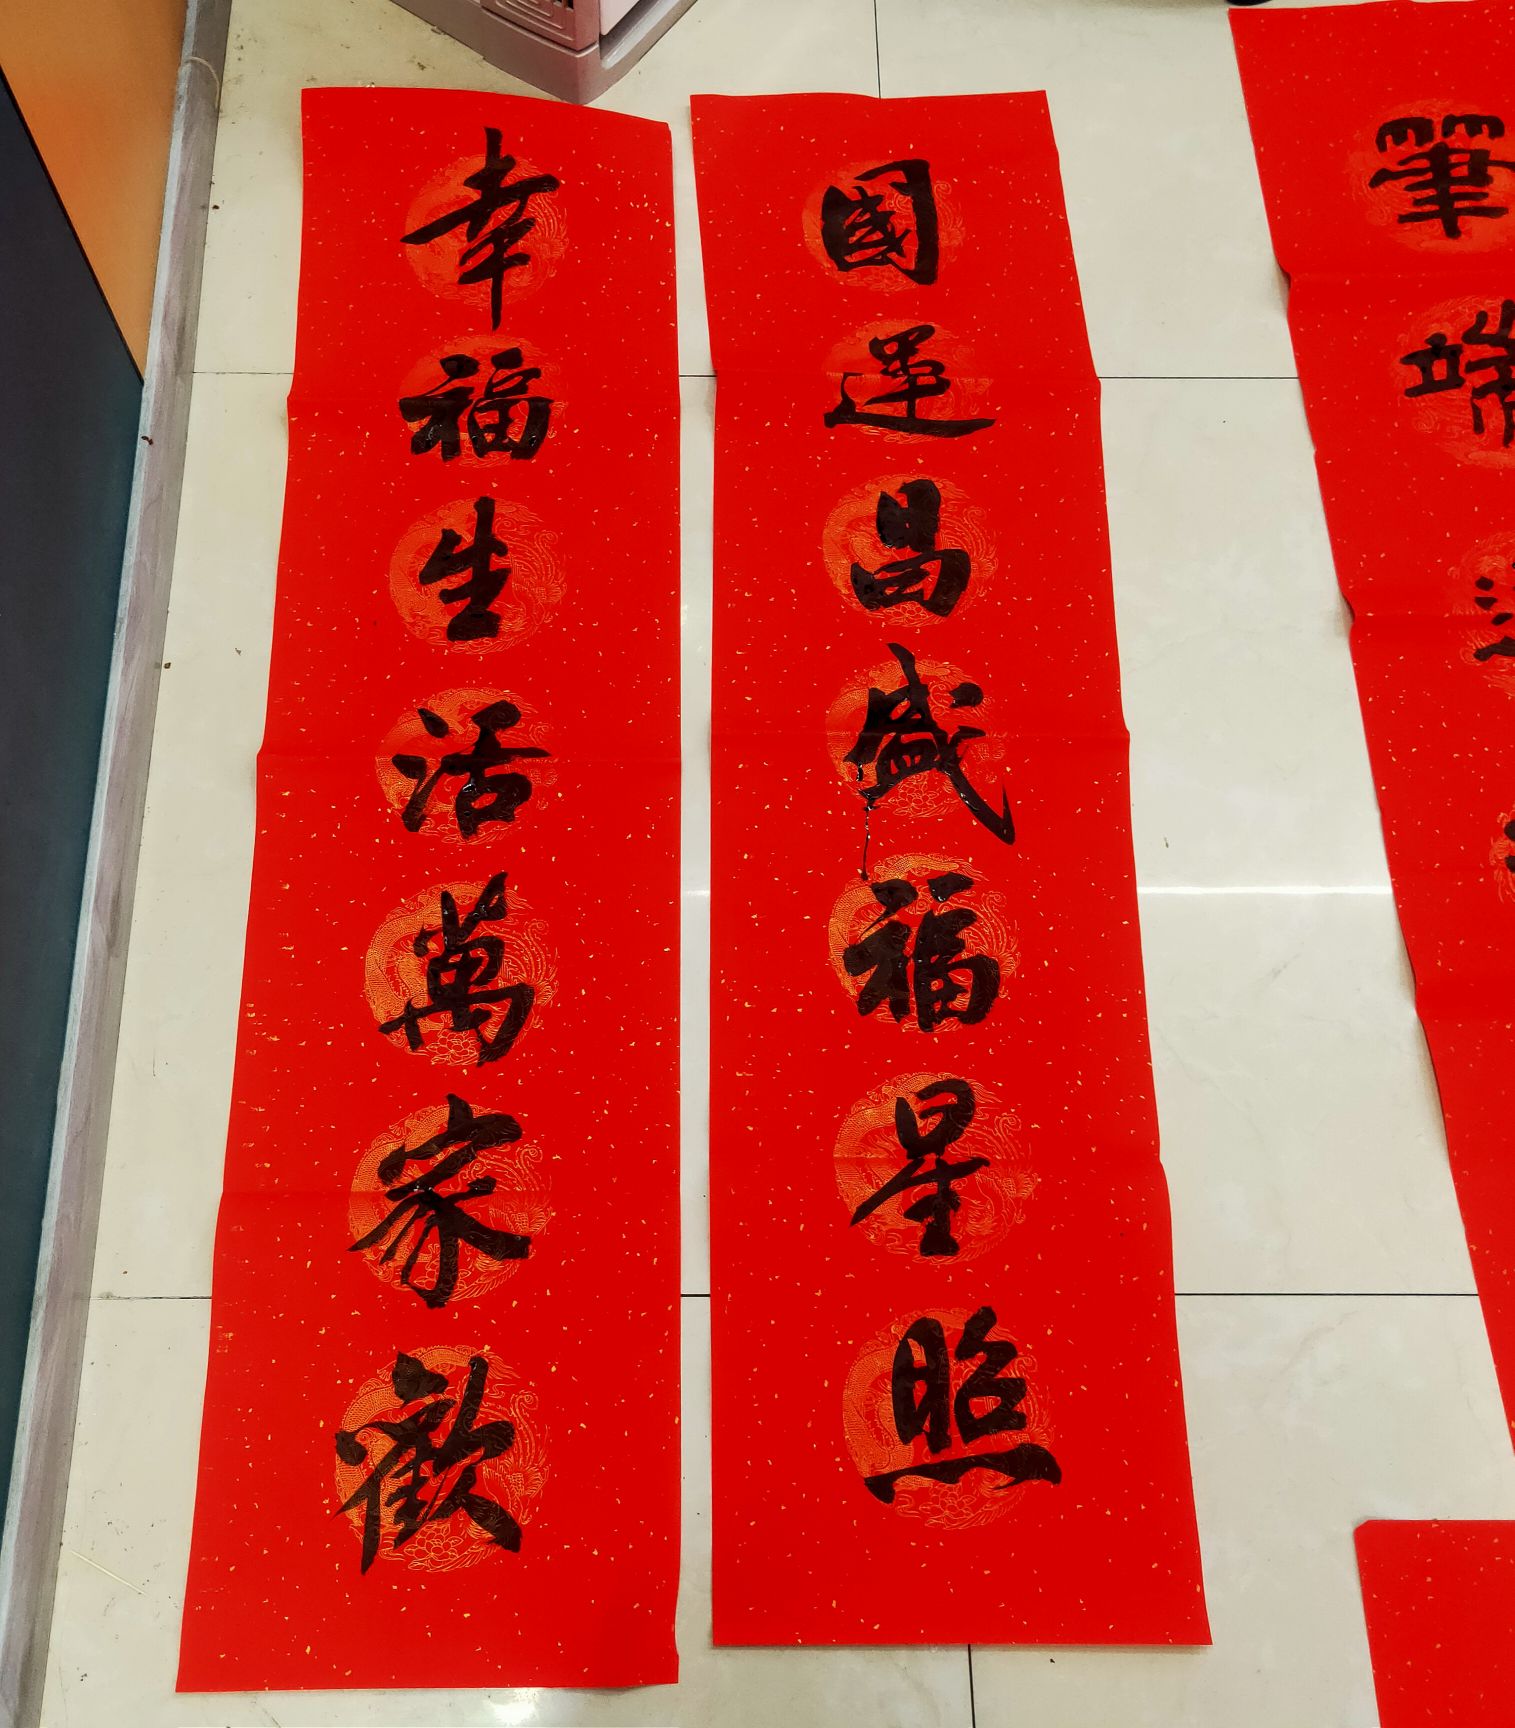 國運昌盛福星照
幸福生活萬家歡
筆端